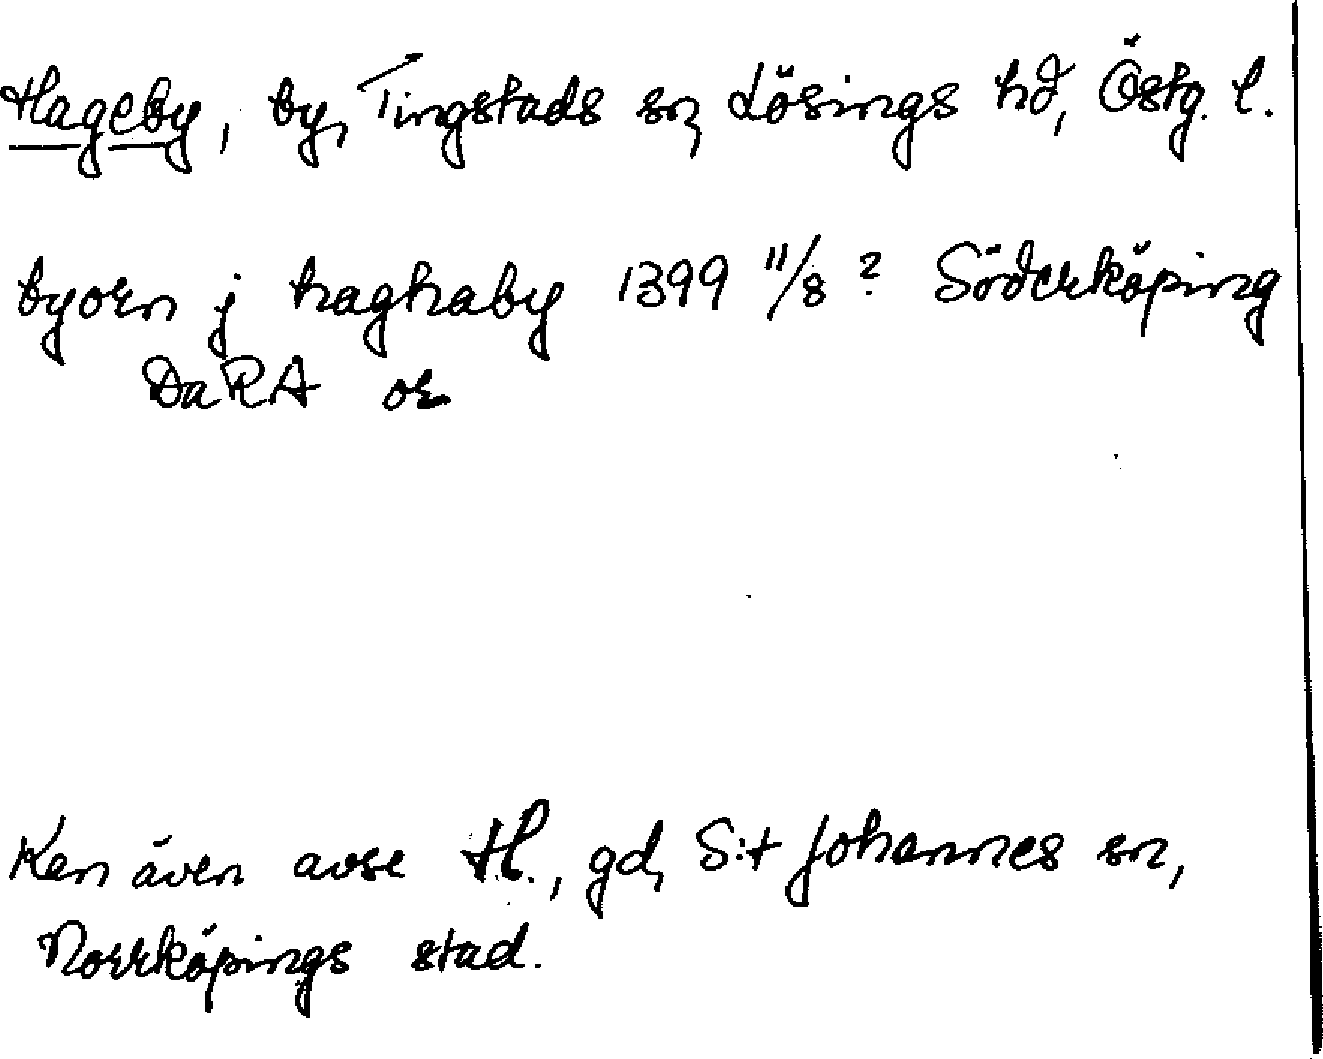 Hageby, by, Tingstads sn, Lösings hd, Östg. l.
byorn j haghaby 1399 11/8 ? Söderköping
DaRA or
Kan även avse H., gd, S:t Johannes sn,
Norrköpings stad.